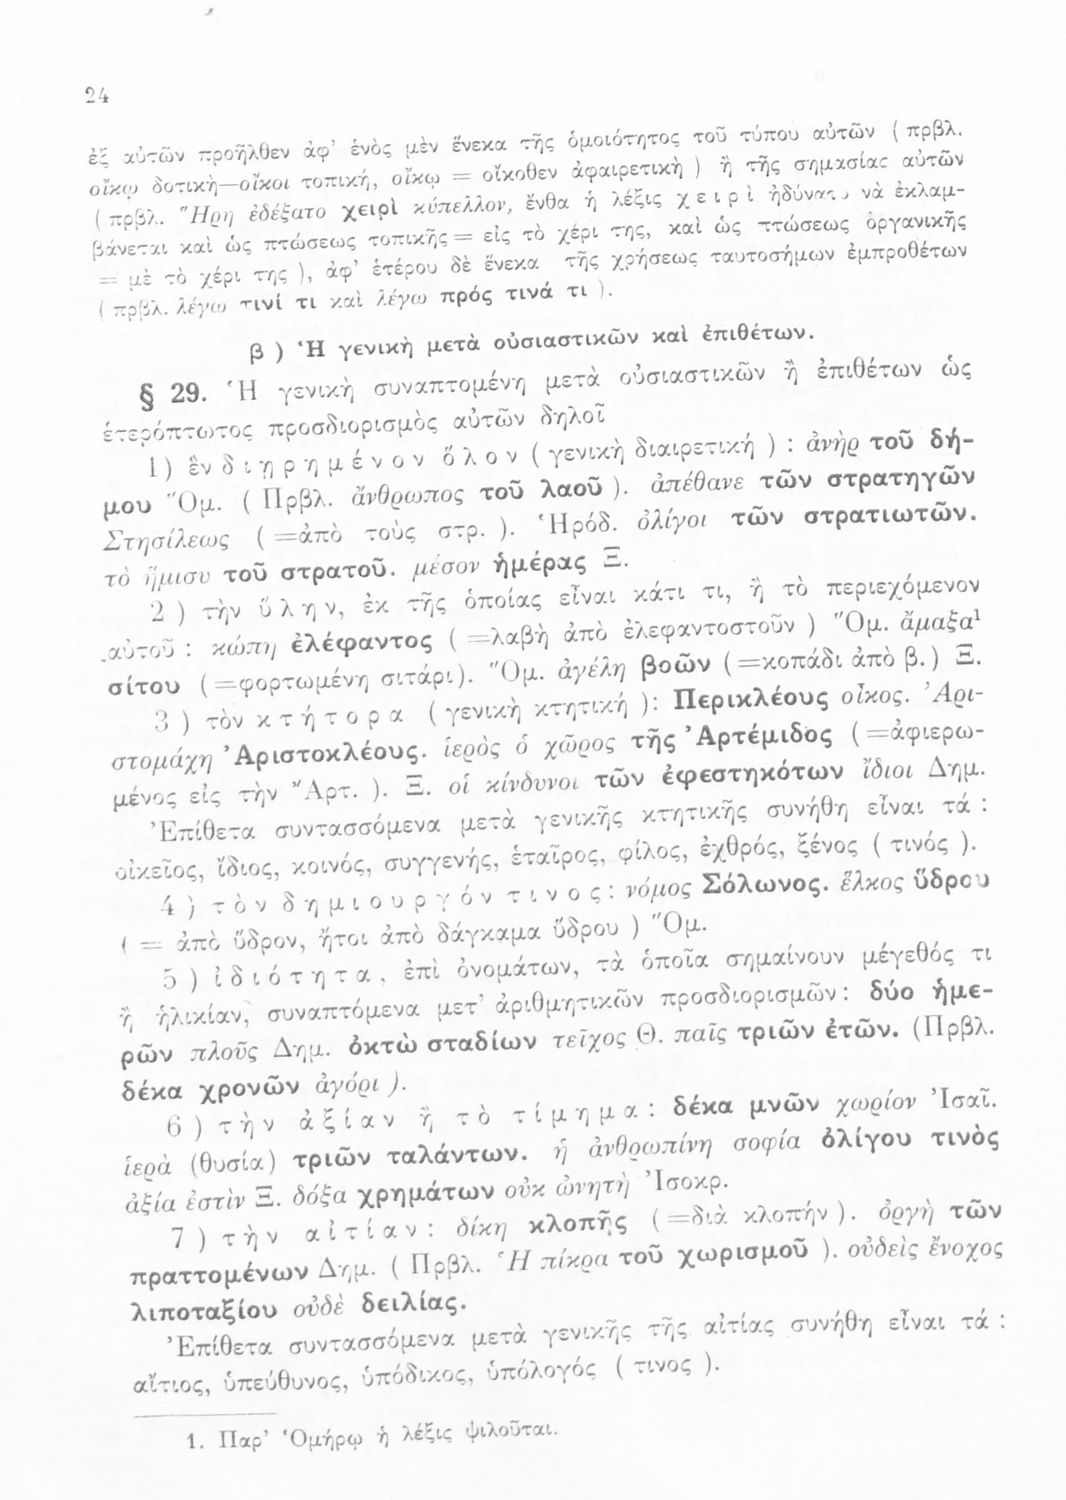 24
ἐξ αὐτῶν προῆλθεν ἀφ' ἑνὸς μὲν ἕνεκα τῆς ὁμοιότητος τοῦ τύπου αὐτῶν ( πρβλ.
οἴκῳ δοτικὴ—οἴκοι τοπική, οἴκῳ = οἴκοθεν ἀφαιρετικὴ ) ἢ τῆς σημασίας αὐτῶν
( πρβλ. Ἥρη ἐδέξατο χειρὶ κύπελλον, ἔνθα ἡ λέξις χ ε ι ρ ὶ ἠδύνατο νὰ ἐκλαμ-
βάνεται καὶ ὡς πτώσεως τοπικῆς = εἰς τὸ χέρι της, καὶ ὡς πτώσεως ὀργανικῆς
= μὲ τὸ χέρι της ), ἀφ' ἑτέρου δὲ ἕνεκα τῆς χρήσεως ταυτοσήμων ἐμπροθέτων
( πρβλ. λέγω τινί τι καὶ λέγω πρός τινά τι ).
β ) Ἡ γενικὴ μετὰ οὐσιαστικῶν καὶ ἐπιθέτων.
§ 29. Ἡ γενικὴ συναπτομένη μετὰ οὐσιαστικῶν ἢ ἐπιθέτων ὡς
ἑτερόπτωτος προσδιορισμὸς αὐτῶν δηλοῖ
1) ἓν δ ι ῃ ρ η μ έ ν ο ν ὅ λ ο ν ( γενικὴ διαιρετική ) : ἀνὴρ τοῦ δή-
μου Ὅμ. ( Πρβλ. ἄνθρωπος τοῦ λαοῦ ). ἀπέθανε τῶν στρατηγῶν
Στησίλεως ( =ἀπὸ τοὺς στρ. ). Ἡρόδ. ὀλίγοι τῶν στρατιωτῶν.
τὸ ἥμισυ τοῦ στρατοῦ. μέσον ἡμέρας Ξ.
2 ) τὴν ὕ λ η ν, ἐκ τῆς ὁποίας εἶναι κάτι τι, ἢ τὸ περιεχόμενον
αὐτοῦ : κώπη ἐλέφαντος ( =λαβὴ ἀπὸ ἐλεφαντοστοῦν ) Ὅμ. ἄμαξα¹
σίτου ( =φορτωμένη σιτάρι). Ὅμ. ἀγέλη βοῶν ( =κοπάδι ἀπὸ β. ) Ξ.
3 ) τὸν κ τ ή τ ο ρ α ( γενικὴ κτητική ): Περικλέους οἶκος. Ἀρι-
στομάχη Ἀριστοκλέους. ἱερὸς ὁ χῶρος τῆς Ἀρτέμιδος ( =ἀφιερω-
μένος εἰς τὴν Ἄρτ. ). Ξ. οἱ κίνδυνοι τῶν ἐφεστηκότων ἴδιοι Δημ.
Ἐπίθετα συντασσόμενα μετὰ γενικῆς κτητικῆς συνήθη εἶναι τά :
οἰκεῖος, ἴδιος, κοινός, συγγενής, ἑταῖρος, φίλος, ἐχθρός, ξένος ( τινός ).
4 ) τ ὸ ν δ η μ ι ο υ ρ γ ό ν τ ι ν ο ς : νόμος Σόλωνος. ἕλκος ὕδρου
( = ἀπὸ ὕδρον, ἤτοι ἀπὸ δάγκαμα ὕδρου ) Ὅμ.
5 ) ἰ δ ι ό τ η τ α , ἐπὶ ὀνομάτων, τὰ ὁποῖα σημαίνουν μέγεθός τι
ἢ ἡλικίαν, συναπτόμενα μετ' ἀριθμητικῶν προσδιορισμῶν: δύο ἡμε-
ρῶν πλοῦς Δημ. ὀκτὼ σταδίων τεῖχος Θ. παῖς τριῶν ἐτῶν. (Πρβλ.
δέκα χρονῶν ἀγόρι ).
6 ) τ ὴ ν ἀ ξ ί α ν ἢ τ ὸ τ ί μ η μ α : δέκα μνῶν χωρίον Ἰσαῖ.
ἱερὰ (θυσία) τριῶν ταλάντων. ἡ ἀνθρωπίνη σοφία ὀλίγου τινὸς
ἀξία ἐστὶν Ξ. δόξα χρημάτων οὐκ ὠνητὴ Ἰσοκρ.
7 ) τ ὴ ν α ἰ τ ί α ν : δίκη κλοπῆς ( =διὰ κλοπήν ). ὀργὴ τῶν
πραττομένων Δημ. ( Πρβλ. Ἡ πίκρα τοῦ χωρισμοῦ ). οὐδεὶς ἔνοχος
λιποταξίου οὐδὲ δειλίας.
Ἐπίθετα συντασσόμενα μετὰ γενικῆς τῆς αἰτίας συνήθη εἶναι τά :
αἴτιος, ὑπεύθυνος, ὑπόδικος, ὑπόλογός ( τινος ).
1. Παρ' Ὁμήρῳ ἡ λέξις ψιλοῦται.